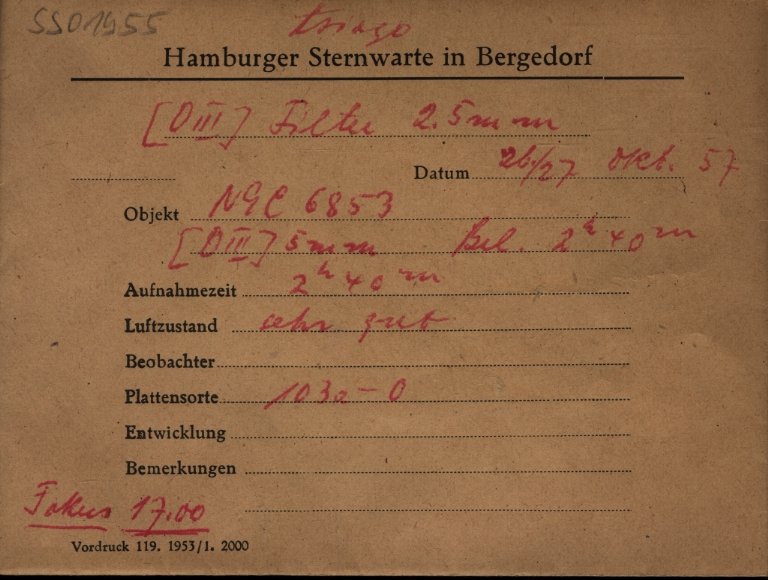 SSO1955
Hamburger Sternwarte in Bergedorf
[O III] Filter 2.5 mm
Datum 26/27 Okt. 57
Objekt NGC 6853
[O III] 5 mm Bel. 2h 40m
Aufnahmezeit 2h 40m
Luftzustand sehr gut
Beobachter
Plattensorte 103a-O
Entwicklung
Bemerkungen
Fokus 17.00
Vordruck 119. 1953/1. 2000